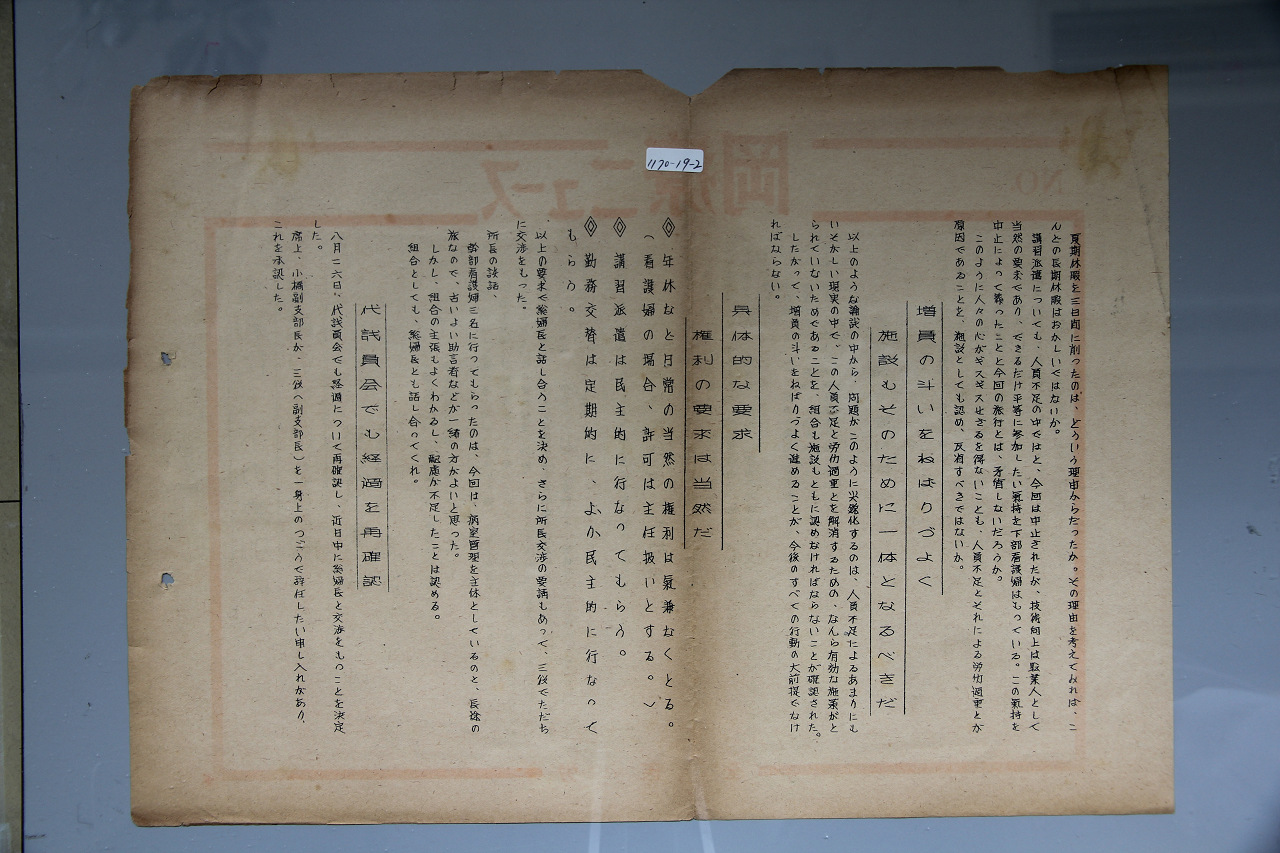 夏期休暇を三日間に削ったのは、どういう理由からだったか。その理由を考えてみれば、こ
んどの長期休暇はおかしいではないか。
講習派遣についても、人員不足の中ではと、今回は中止されたが、技術向上は職業人として
当然の要求であり、できるだけ平等に参加したい氣持を下部看護婦はもっている。この氣持を
中止によって奪ったことと今回の旅行とは、矛盾しないだろうか。
このように人々の心がギスギスせざるを得ないことも、人員不足とそれによる労仂過重とが
原因であることを、施設としても認め、反省すべきではないか。
増員の斗いをねばりづよく
施設もそのために一体となるべきだ
以上のような論議の中から、問題がこのように尖鋭化するのは、人員不足によるあまりにも
いそがしい現実の中で、この人員不足と労仂過重とを解消するための、なんら有効な施策がと
られていないためであることを、組合も施設もともに認めなければならないことが確認された。
したがって、増員の斗いをねばりづよく進めることが、今後のすべての行動の大前提でなけ
ればならない。
具体的な要求
権利の要求は当然だ
◇ 年休など日常の当然の権利は氣兼なくとる。
(看護婦の場合、許可は主任扱いとする。)
◇ 講習派遣は民主的に行なってもらう。
◇ 勤務交替は定期的に、よか民主的に行なって
もらう。
以上の要求で総婦長と話し合うことを決め、さらに所長交渉の要請もあって、三役でただち
に交渉をもった。
所長の談話、
幹部看護婦三名に行ってもらったのは、今回は、病室管理を主体としているのと、長途の
旅なので、古いよい助言者などが一緒の方がよいと思った。
しかし、組合の主張もよくわかるし、配慮が不足したことは認める。
組合としても、総婦長とも話し合ってくれ。
代議員会でも経過を再確認
八月二六日、代議員会でも経過について再確認し、近日中に総婦長と交渉をもつことを決定
した。
席上、小橋副支部長が、三役(副支部長)を一身上のつごうで辞任したい申し入れがあり、
これを承認した。
1170-19-2
岡療ニュース
NO